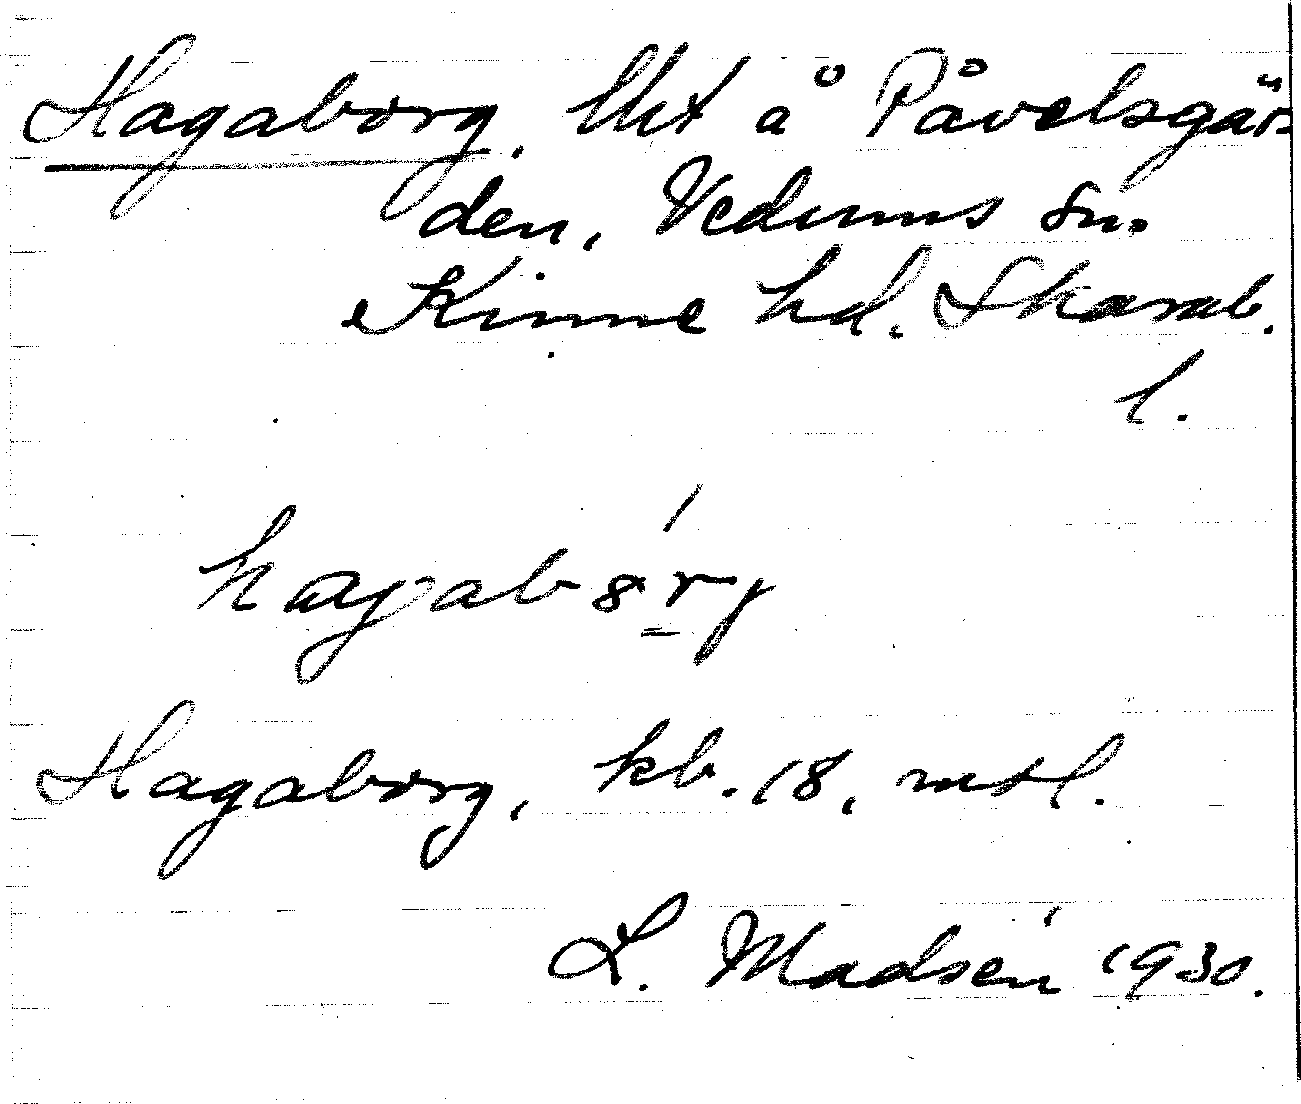 Hagaborg. Utt å Påvelsgår-
den, Vedums sn.
Kinne hd. Skarab.
l.
hagabórj
Hagaborg, kb. 18, mtl.
L. Madsén 1930.